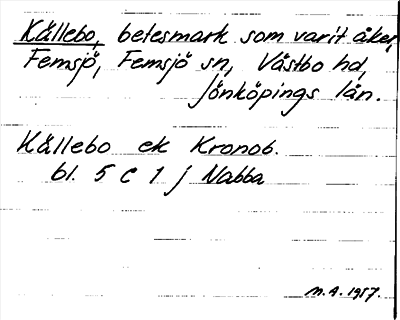 Källebo, betesmark som varit åker,
Femsjö, Femsjö sn, Västbo hd,
Jönköpings län.
Källebo ek Kronob.
bl. 5 c 1 j Nabba
M.A. 1957.